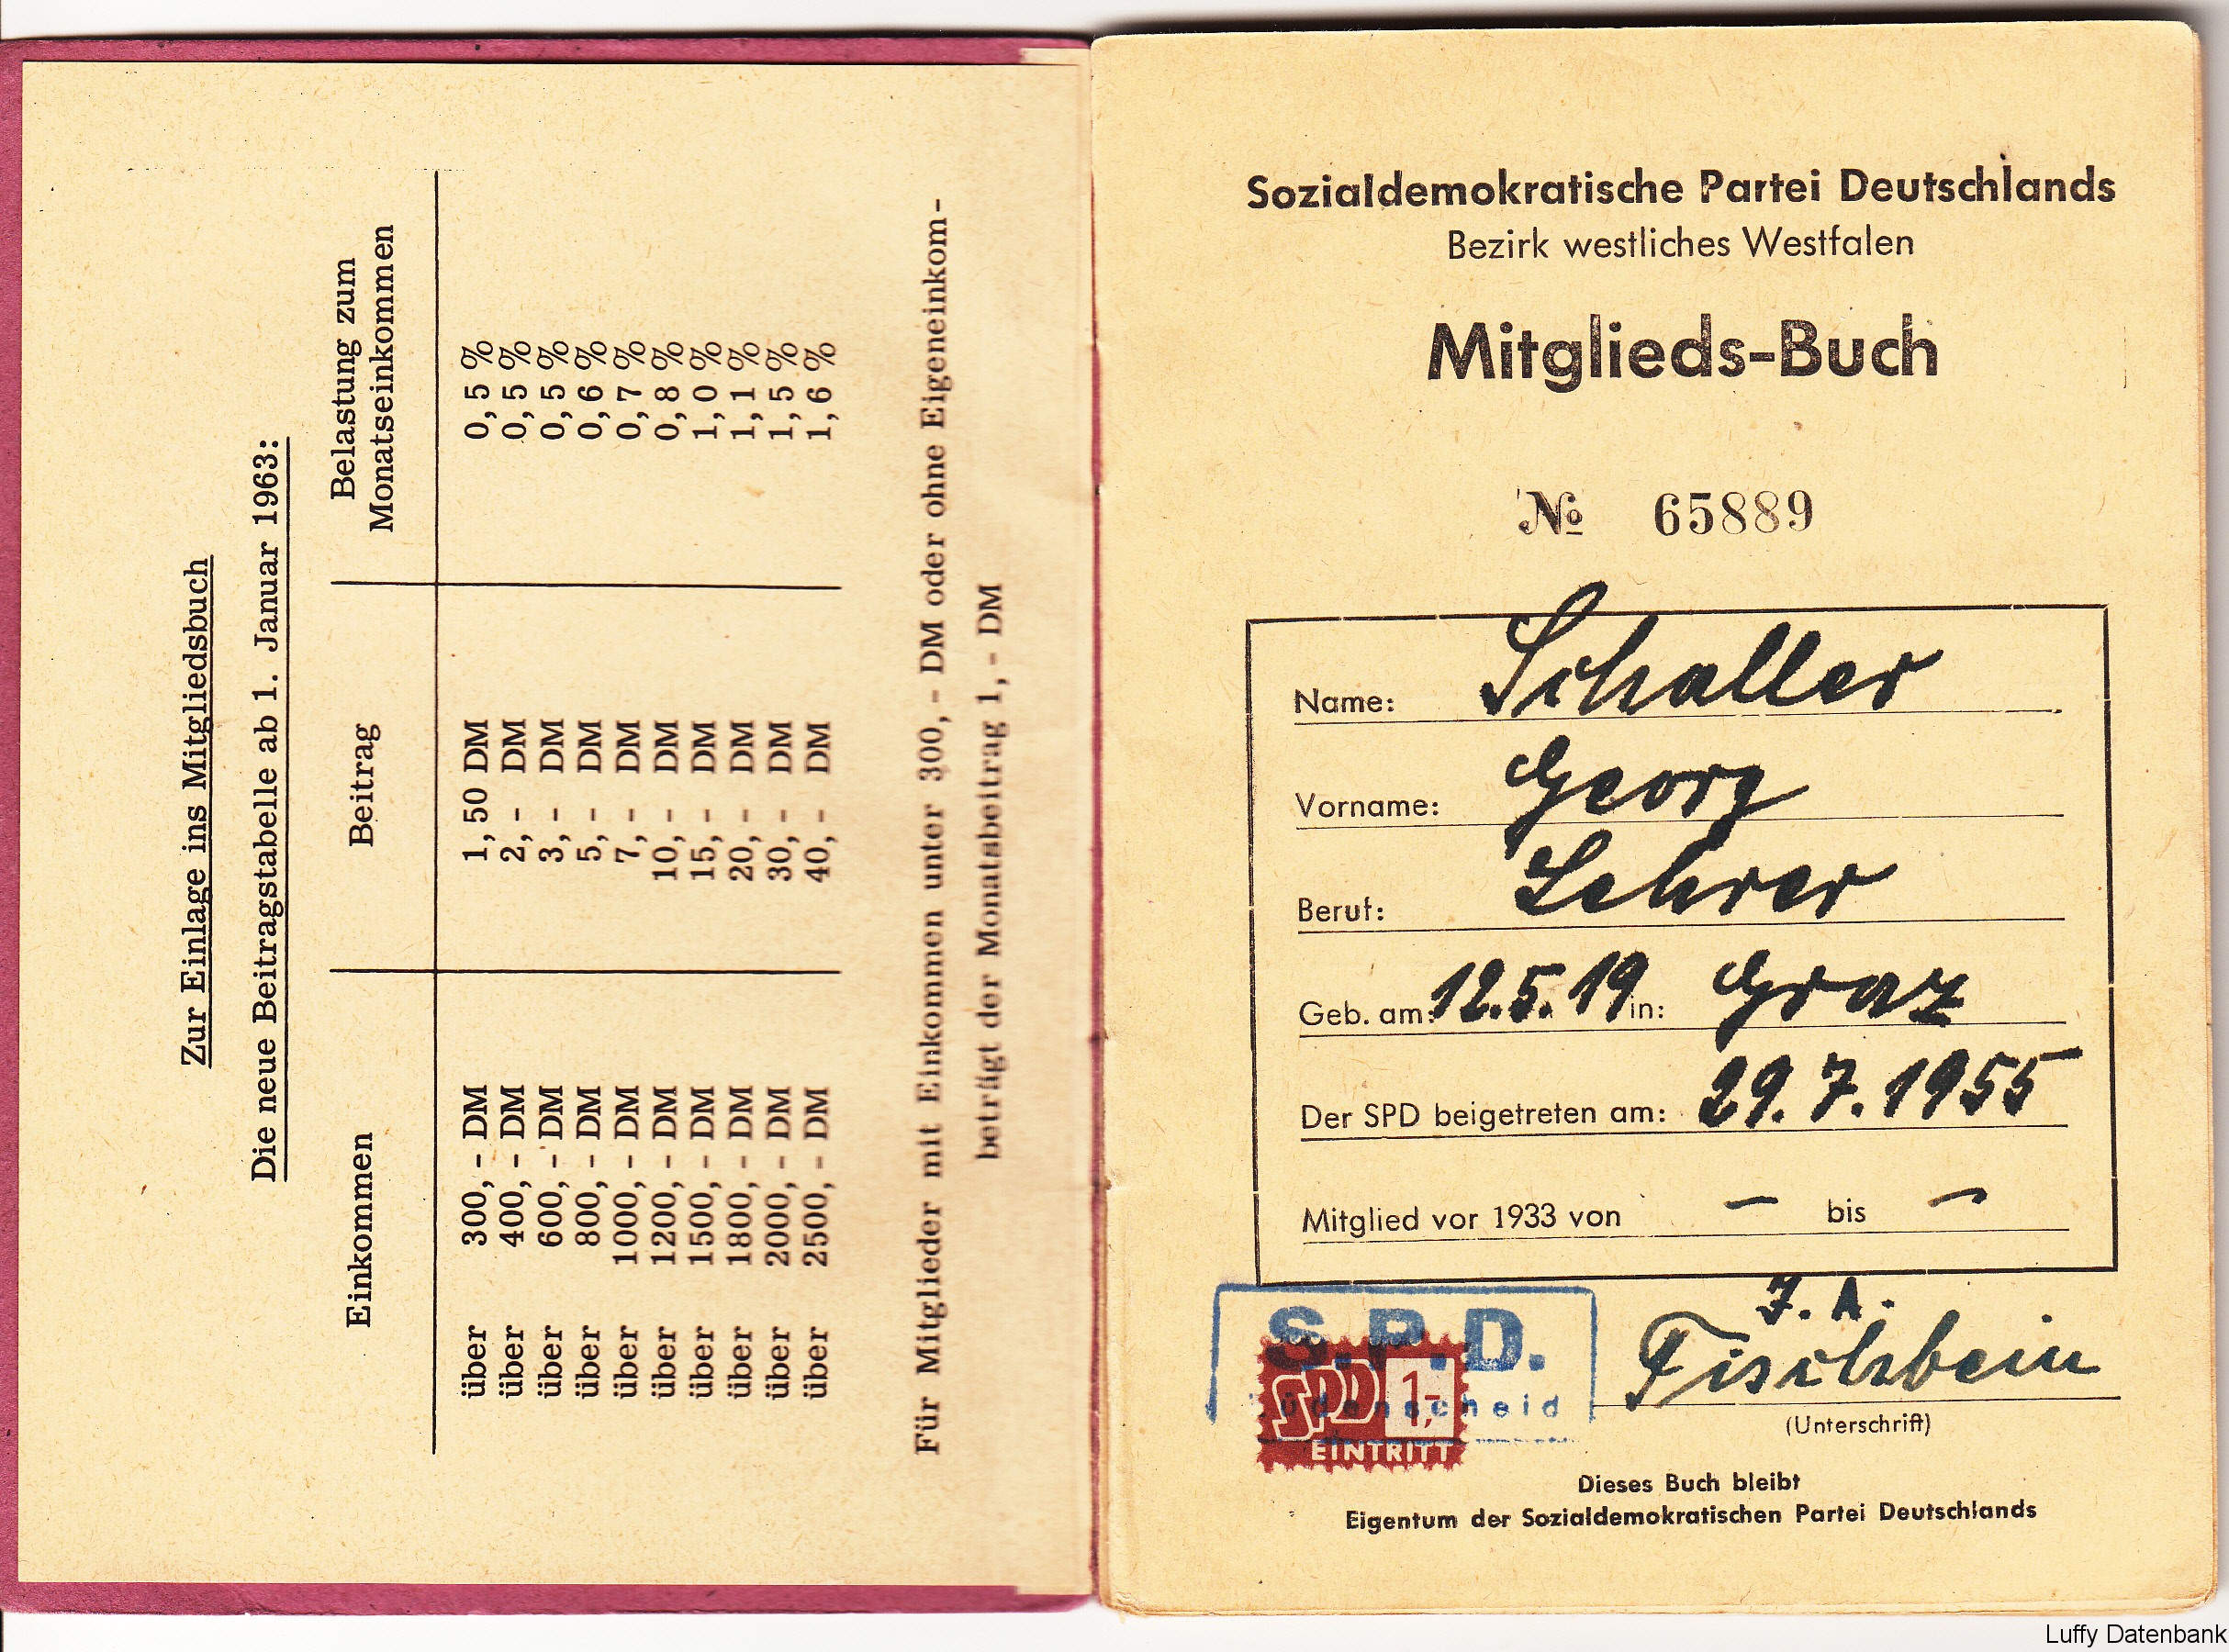 Zur Einlage ins Mitgliedsbuch
Die neue Beitragstabelle ab 1. Januar 1963:
Einkommen Beitrag Belastung zum
Monatseinkommen
über 300,- DM 1,50 DM 0,5 %
über 400,- DM 2,- DM 0,5 %
über 600,- DM 3,- DM 0,5 %
über 800,- DM 5,- DM 0,6 %
über 1000,- DM 7,- DM 0,7 %
über 1200,- DM 10,- DM 0,8 %
über 1500,- DM 15,- DM 1,0 %
über 1800,- DM 20,- DM 1,1 %
über 2000,- DM 30,- DM 1,5 %
über 2500,- DM 40,- DM 1,6 %
Für Mitglieder mit Einkommen unter 300,- DM oder ohne Eigeneinkom-
beträgt der Monatsbeitrag 1,- DM
Sozialdemokratische Partei Deutschlands
Bezirk westliches Westfalen
Mitglieds-Buch
№ 65889
Name: Schaller
Vorname: Georg
Beruf: Lehrer
Geb. am: 12.5.19 in: Graz
Der SPD beigetreten am: 29.7.1955
Mitglied vor 1933 von – bis –
J. A.
Fischbein
(Unterschrift)
S.P.D.
Lüdenscheid
SPD 1,-
EINTRITT
Dieses Buch bleibt
Eigentum der Sozialdemokratischen Partei Deutschlands
Luffy Datenbank